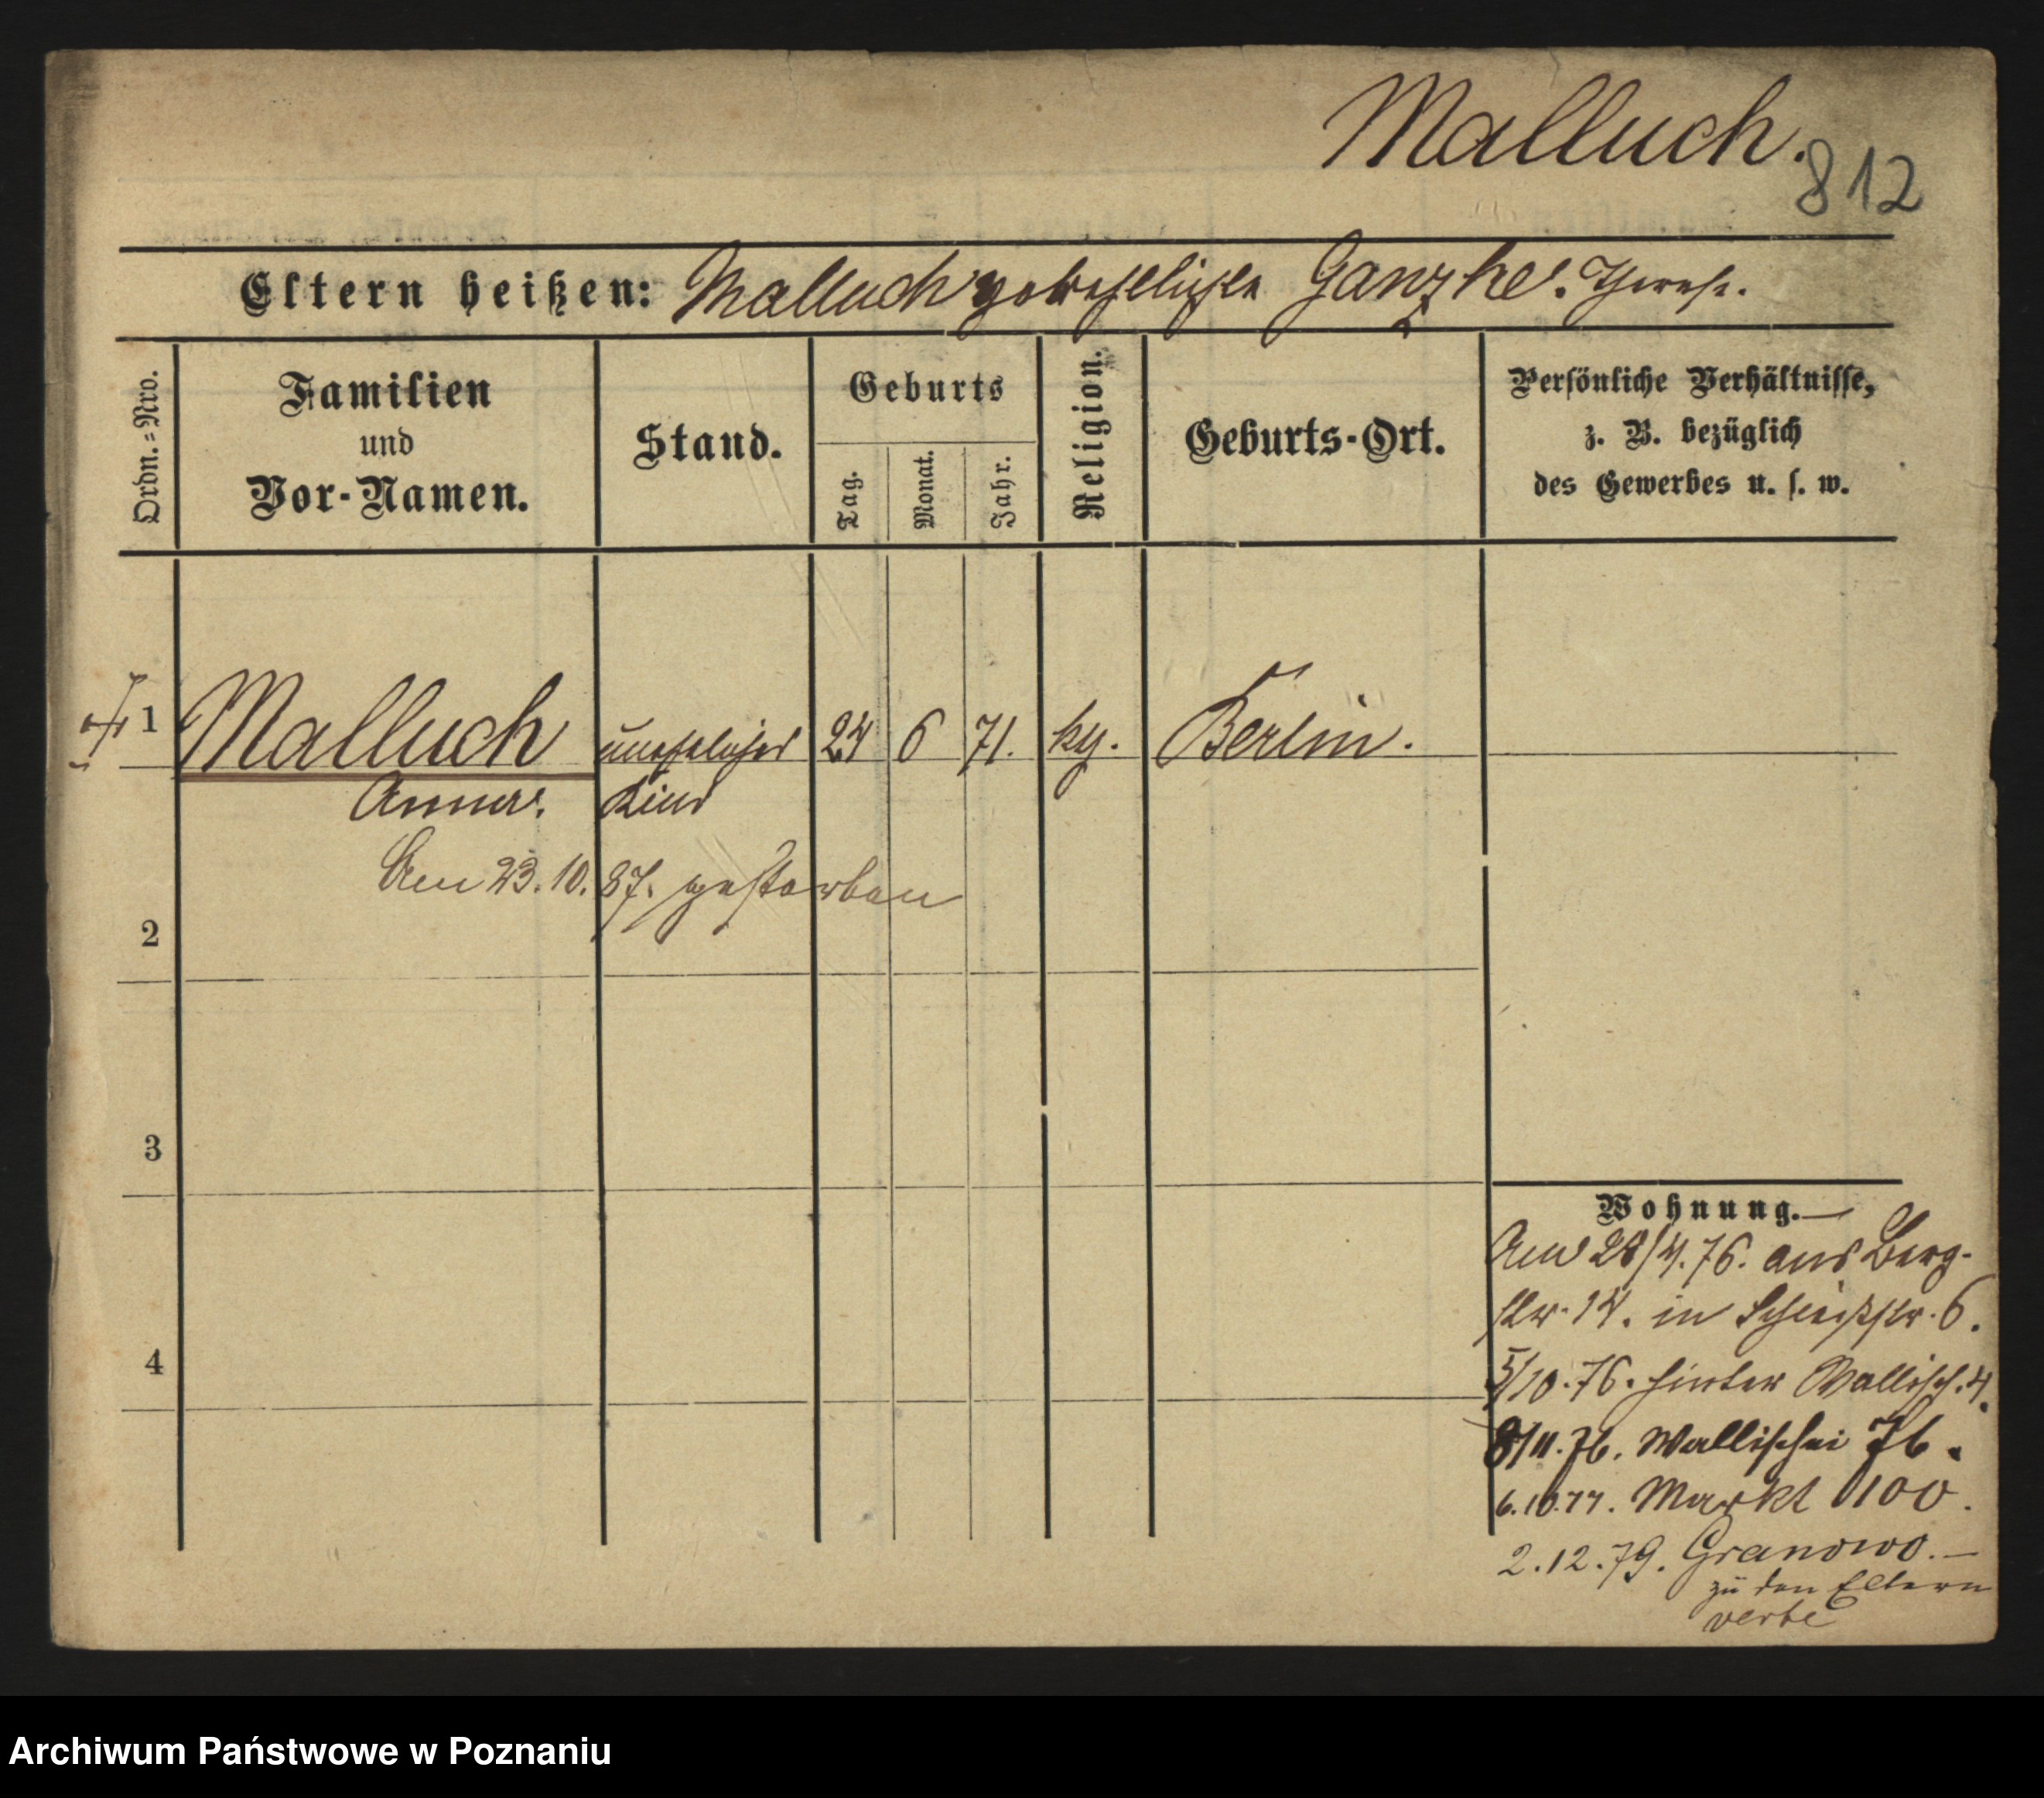 Malluch.
812
Eltern heißen: Malluch verehelichte Ganzke. Therese.
Ordn.=Nro.
Familien
und
Vor-Namen.
Stand.
Geburts
Tag.
Monat.
Jahr.
Religion.
Geburts-Ort.
Persönliche Verhältnisse,
z. B. bezüglich
des Gewerbes u. s. w.
1 Malluch uneheliches 24 6 71. kg. Berlin.
Anna. Kind
Am 23.10.87. gestorben
2
3
4
Wohnung.
Am 28/4.76. aus Berg-
str. 14. in Schießstr. 6.
5/10.76. hinter Wallisch. 4.
8/11.76. Wallischei 76.
6.10.77. Markt 100.
2.12.79. Granowo.—
zu den Eltern
Archiwum Państwowe w Poznaniu